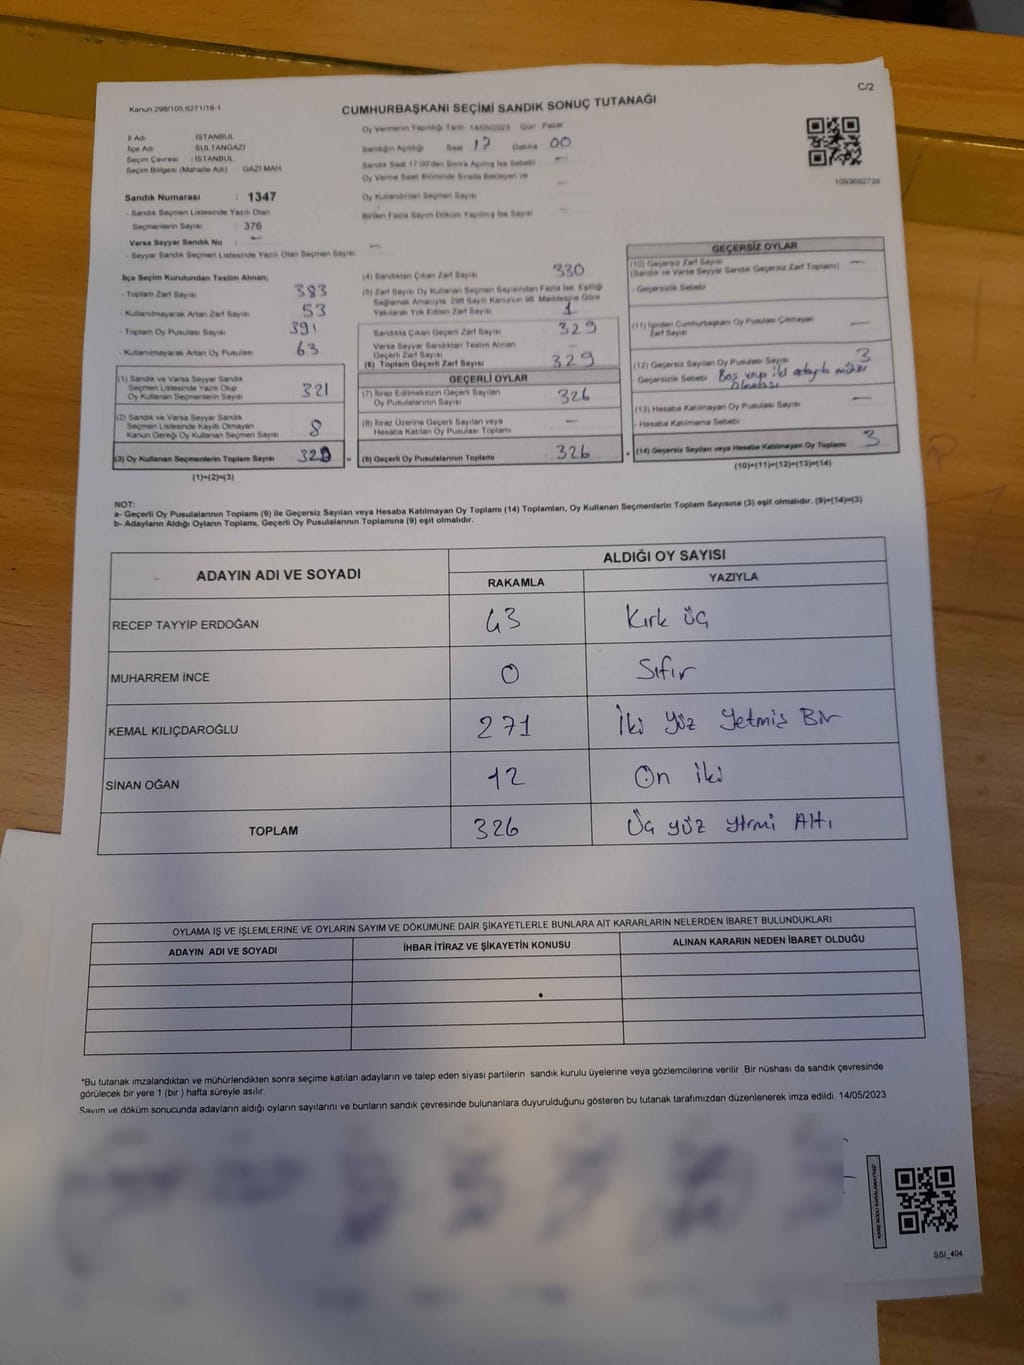 Kanun:298/105,6271/18-1
C/2
CUMHURBAŞKANI SEÇİMİ SANDIK SONUÇ TUTANAĞI
İl Adı : İSTANBUL
İlçe Adı : SULTANGAZİ
Seçim Çevresi : İSTANBUL
Seçim Bölgesi (Mahalle Adı) GAZİ MAH.
Oy Vermenin Yapıldığı Tarih 14/05/2023 Gün Pazar
Sandığın Açıldığı Saat 17 Dakika 00
Sandık Saat 17:00'den Sonra Açılmış İse Sebebi —
Oy Verme Saati Bitiminde Sırada Bekleyen ve
Oy Kullandırılan Seçmen Sayısı —
Birden Fazla Sayım Döküm Yapılmış İse Sayısı —
1093692739
Sandık Numarası : 1347
- Sandık Seçmen Listesinde Yazılı Olan
Seçmenlerin Sayısı : 376
Varsa Seyyar Sandık No : —
- Seyyar Sandık Seçmen Listesinde Yazılı Olan Seçmen Sayısı —
İlçe Seçim Kurulundan Teslim Alınan;
- Toplam Zarf Sayısı 383
- Kullanılmayarak Artan Zarf Sayısı 53
- Toplam Oy Pusulası Sayısı 391
- Kullanılmayarak Artan Oy Pusulası 63
(1) Sandık ve Varsa Seyyar Sandık
Seçmen Listesinde Yazılı Olup
Oy Kullanan Seçmenlerin Sayısı 321
(2) Sandık ve Varsa Seyyar Sandık
Seçmen Listesinde Kayıtlı Olmayan
Kanun Gereği Oy Kullanan Seçmen Sayısı 8
(3) Oy Kullanan Seçmenlerin Toplam Sayısı 329
(1)+(2)=(3)
(4) Sandıktan Çıkan Zarf Sayısı 330
(5) Zarf Sayısı Oy Kullanan Seçmen Sayısından Fazla İse, Eşitliği
Sağlamak Amacıyla, 298 Sayılı Kanunun 98. Maddesine Göre
Yakılarak Yok Edilen Zarf Sayısı 1
Sandıkta Çıkan Geçerli Zarf Sayısı 329
Varsa Seyyar Sandıktan Teslim Alınan
Geçerli Zarf Sayısı —
(6) Toplam Geçerli Zarf Sayısı 329
GEÇERLİ OYLAR
(7) İtiraz Edilmeksizin Geçerli Sayılan
Oy Pusulasının Sayısı 326
(8) İtiraz Üzerine Geçerli Sayılan veya
Hesaba Katılan Oy Pusulası Toplamı —
(9) Geçerli Oy Pusulalarının Toplamı 326
GEÇERSİZ OYLAR
(10) Geçersiz Zarf Sayısı —
(Sandık ve Varsa Seyyar Sandık Geçersiz Zarf Toplamı)
- Geçersizlik Sebebi
(11) İçinden Cumhurbaşkanı Oy Pusulası Çıkmayan
Zarf Sayısı —
(12) Geçersiz Sayılan Oy Pusulası Sayısı 3
- Geçersizlik Sebebi Boş veya iki adayda mühür
olması
(13) Hesaba Katılmayan Oy Pusulası Sayısı —
- Hesaba Katılmama Sebebi
(14) Geçersiz Sayılan veya Hesaba Katılmayan Oy Toplamı 3
(10)+(11)+(12)+(13)=(14)
NOT:
a- Geçerli Oy Pusulalarının Toplamı (9) ile Geçersiz Sayılan veya Hesaba Katılmayan Oy Toplamı (14) Toplamları, Oy Kullanan Seçmenlerin Toplam Sayısına (3) eşit olmalıdır. (9)+(14)=(3)
b- Adayların Aldığı Oyların Toplamı, Geçerli Oy Pusulalarının Toplamına (9) eşit olmalıdır.
ADAYIN ADI VE SOYADI
ALDIĞI OY SAYISI
RAKAMLA YAZIYLA
RECEP TAYYİP ERDOĞAN 43 Kırk üç
MUHARREM İNCE 0 Sıfır
KEMAL KILIÇDAROĞLU 271 İki yüz yetmiş Bir
SİNAN OĞAN 12 On iki
TOPLAM 326 Üç yüz yirmi Altı
OYLAMA İŞ VE İŞLEMLERİNE VE OYLARIN SAYIM VE DÖKÜMÜNE DAİR ŞİKAYETLERLE BUNLARA AİT KARARLARIN NELERDEN İBARET BULUNDUKLARI
ADAYIN ADI VE SOYADI İHBAR İTİRAZ VE ŞİKAYETİN KONUSU ALINAN KARARIN NEDEN İBARET OLDUĞU
*Bu tutanak imzalandıktan ve mühürlendikten sonra seçime katılan adayların ve talep eden siyasi partilerin sandık kurulu üyelerine veya gözlemcilerine verilir. Bir nüshası da sandık çevresinde
görülecek bir yere 1 (bir ) hafta süreyle asılır.
Sayım ve döküm sonucunda adayların aldığı oyların sayılarını ve bunların sandık çevresinde bulunanlara duyurulduğunu gösteren bu tutanak tarafımızdan düzenlenerek imza edildi. 14/05/2023
KARE KODU KARALAMAYINIZ!
SSİ_404